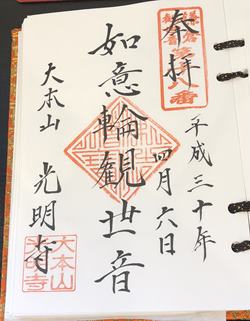 奉拝
平成三十年
四月六日
如意輪観世音
大本山 光明寺
大本山
光明寺